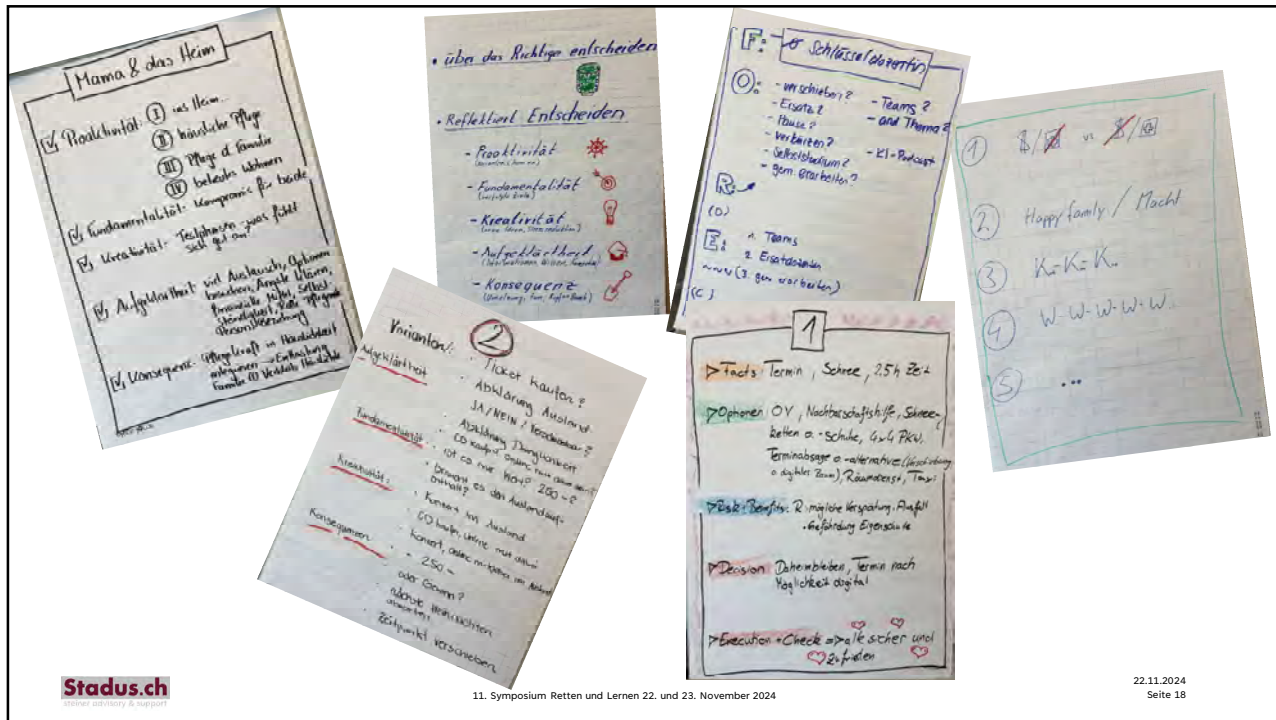 Mama & das Heim
Proaktivität: I ins Heim...
II häusliche Pflege
III Pflege d. Familie
IV betreutes Wohnen
Fundamentalität: Kompromis für beide
Kreativität: Testphasen, was fühlt
sich gut an
Aufgeklärtheit viel Austausch, Optionen
besuchen, Ängste klären,
finanzielle Mittel, Selbst-
ständigkeit,
Konsequenz: Pflegekraft in Häuslichkeit
Entlastung
Familie
• über das Richtige entscheiden
• Reflektiert Entscheiden
- Proaktivität
- Fundamentalität
- Kreativität
- Aufgeklärtheit
- Konsequenz
F: Schlüsseldozentin
O: - verschieben? - Teams?
- Ersatz? - and Thema?
- Pause?
- verkürzen? - KI-Podcast
- Selbststudium?
- gem. erarbeiten?
R:
(D)
E: 1. Teams
2. Ersatzdozenten
(3. gem erarbeiten)
(C)
1
2 Happy family / Macht
3 K-K-K
4 W-W-W-W-W
5 ...
2
Varianten:
Ticket kaufen?
Aufgeklärtheit
Abklärung Ausland
JA/NEIN /
Abklärung Dringlichkeit
Fundamentalität
ist es mir 200 - €
Kreativität:
Konzert im Ausland
CD kaufen, online
Konsequenzen
- 250 -
oder Gewinn?
Zeitpunkt verschieben
1
> Facts: Termin, Schnee, 2.5h Zeit
> Optionen: ÖV, Nachbarschaftshilfe, Schnee-
ketten o. -schuhe, 4x4 PKW,
Terminabsage o. -alternative (Verschiebung
o. digitaler Raum), Räumdienst, Taxi
> Risk + Benefits: R: mögliche Verspätung, Ausfall
• Gefährdung Eigenschutz
> Decision: Daheimbleiben, Termin nach
Möglichkeit digital
> Execution + Check => alle sicher und
zufrieden
Stadus.ch
steiner advisory & support
11. Symposium Retten und Lernen 22. und 23. November 2024
22.11.2024
Seite 18